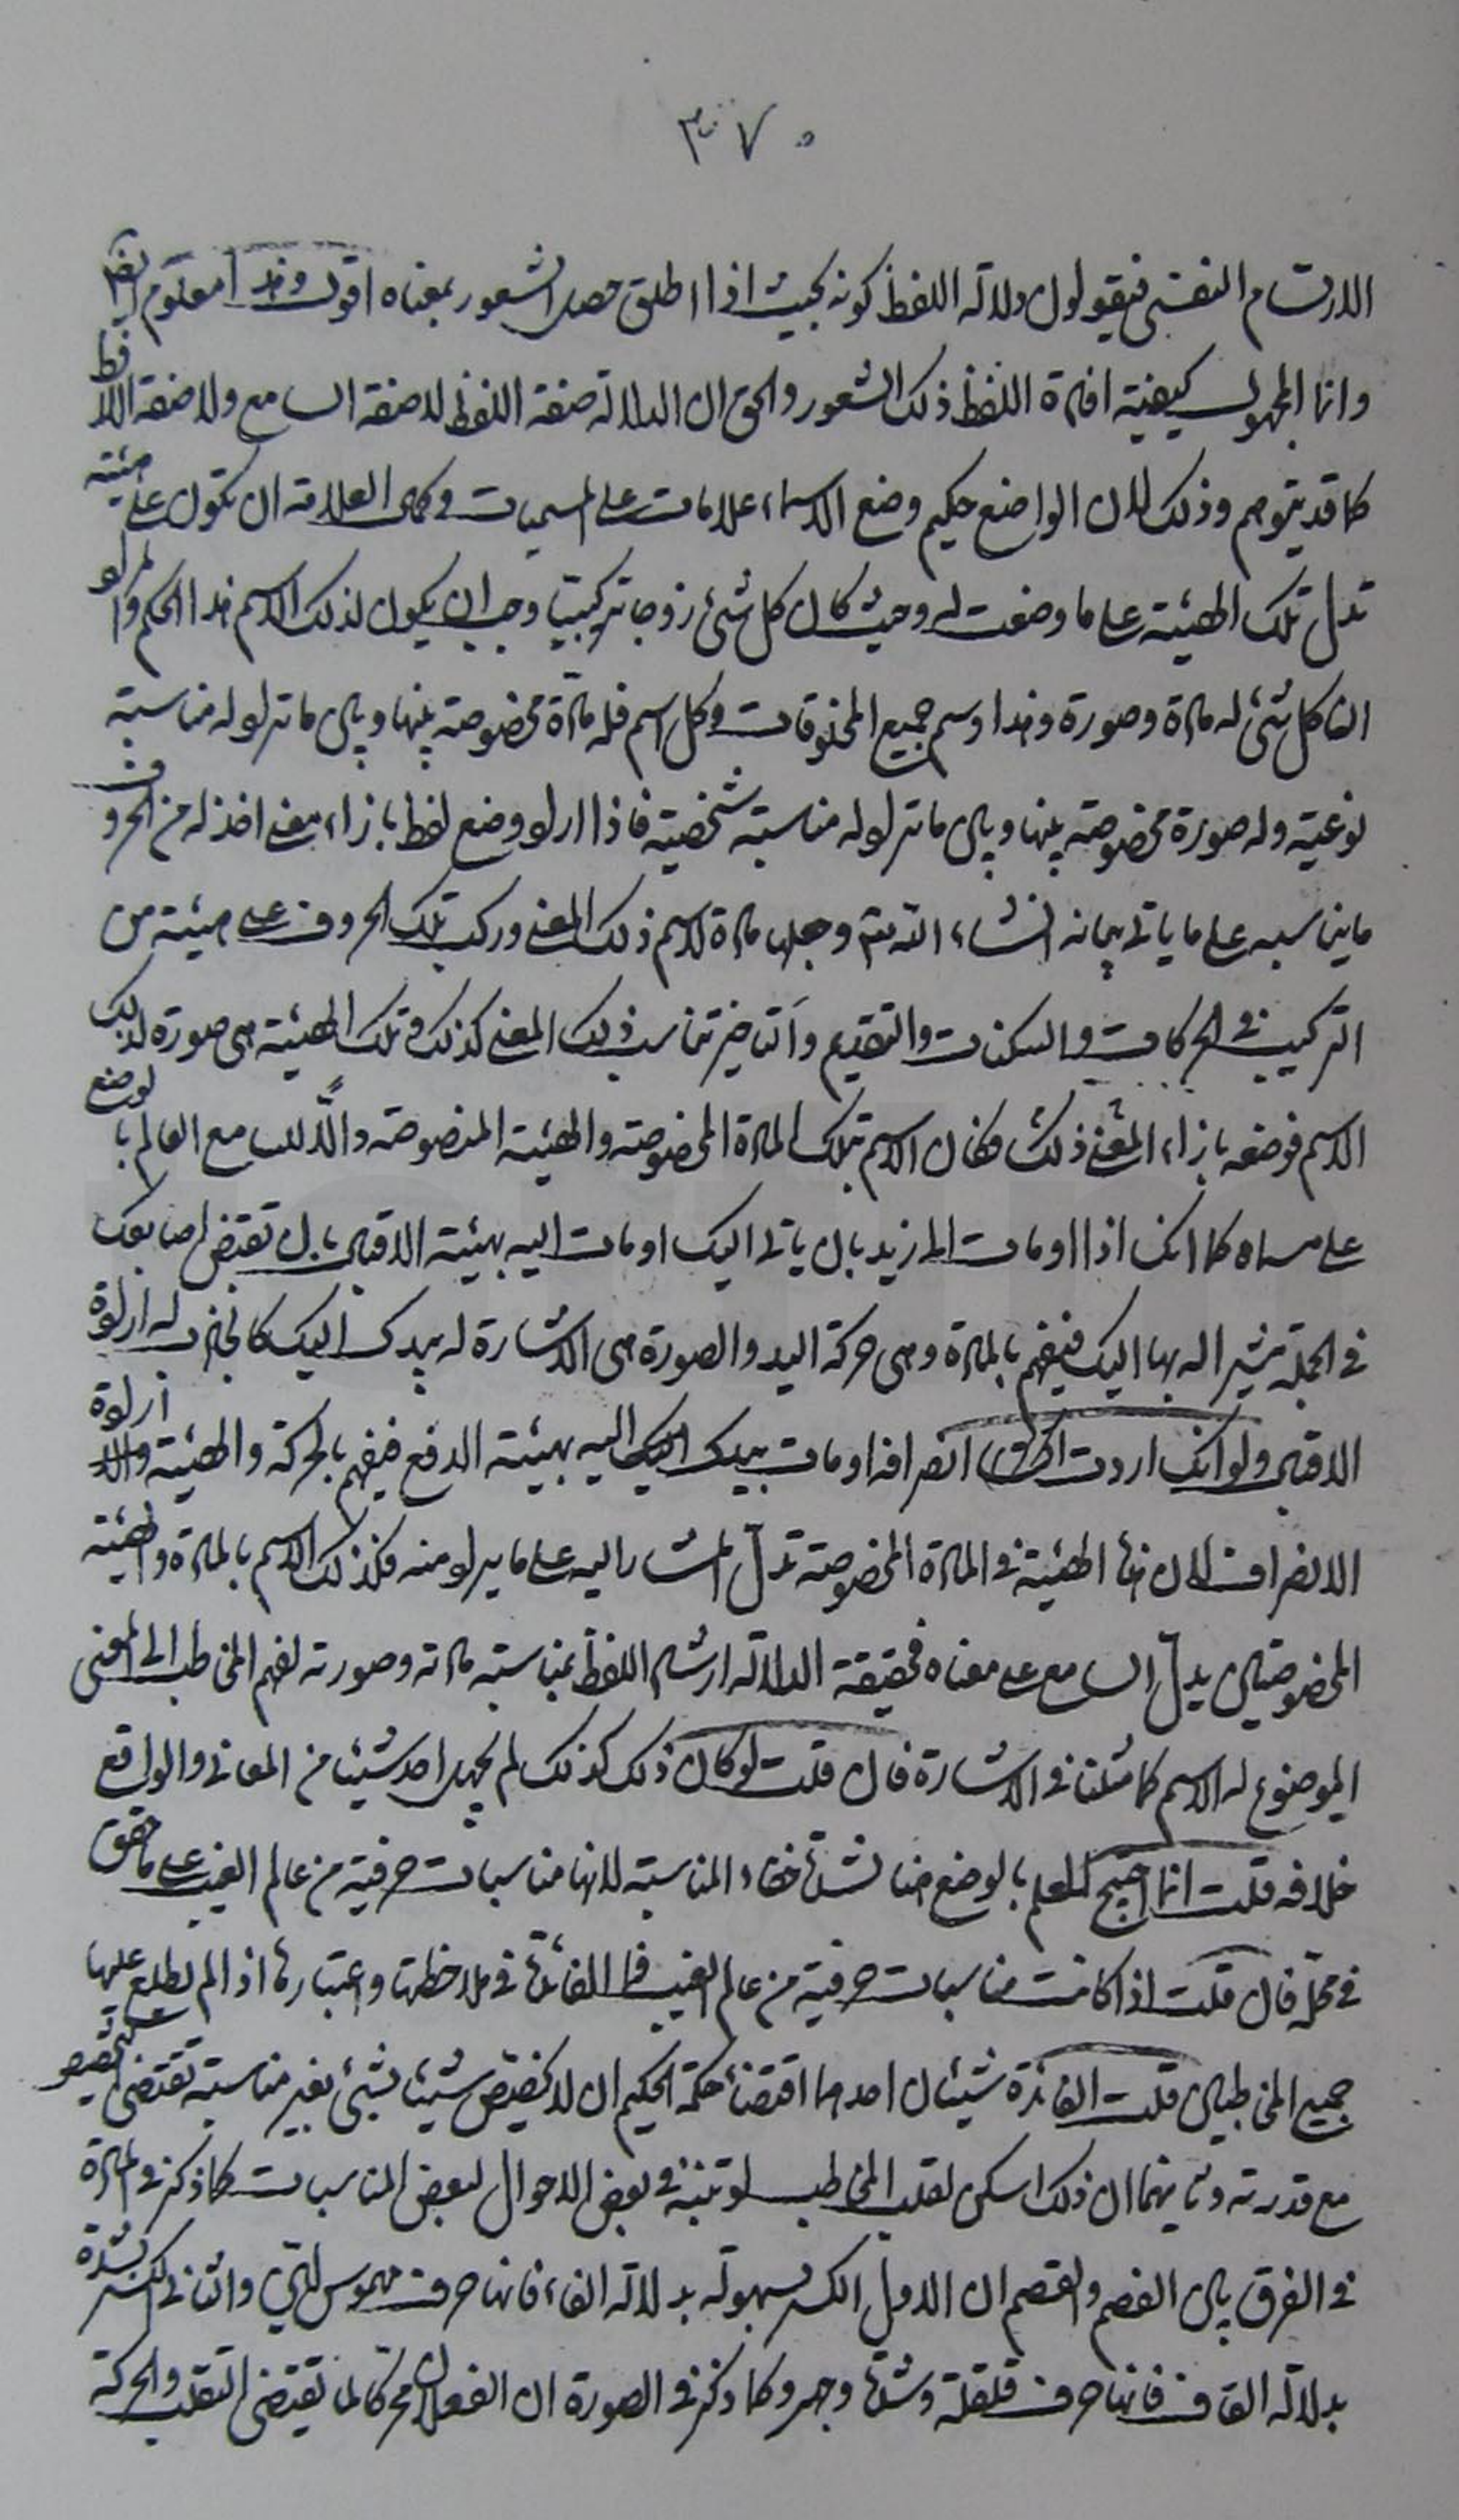 ٣٧٠
الارتسام النفسى فيقولون دلالة اللفظ كونه بحيث اذا اطلق حصل الشعور بمعناه اقول وهذا معلوم ايضا
وانما المجهول كيفية افادة اللفظ ذلك الشعور والحق ان الدلالة صفة اللفظ لا صفة السامع ولا صفة اللافظ
كما قد يتوهم وذلك لان الواضع حكيم وضع الاسماء علامات على المسميات وكمال العلامة ان تكون على هيئة
تدل تلك الهيئة على ما وضعت له وحيث كان كل شئ زوجا تركيبيا وجب ان يكون لذلك الاسم هذا الحكم والمراد
ان كل شئ له مادة وصورة وهذا وسم جميع المخلوقات وكل اسم فله مادة مخصوصة بينها وبين ما تراد له مناسبة
نوعية وله صورة مخصوصة بينها وبين ما تراد له مناسبة شخصية فاذا اراد وضع لفظ بازاء معنى اخذ له من الحروف
ما يناسبه على ما ياتى بيانه انشاء الله تع وجعلها مادة لاسم ذلك المعنى وركب تلك الحروف على هيئة من
التركيب فى الحركات والسكنات والتقديم والتاخير تناسب ذلك المعنى كذلك وتلك الهيئة هى صورة لذلك
الاسم فوضعه بازاء المعنى ذلك فكان الاسم بتلك المادة المخصوصة والهيئة المخصوصة دالا للسامع العالم بالوضع
على مسماه كما انك اذا اومات الى زيد بان ياتى اليك اومات اليه بهيئة الاقبال بان تقبض اصابعك
فى الجملة تشير اليه بها اليك فيفهم بالمادة وهى حركة اليد والصورة هى الاشارة له بيدك اليك كالجاذب له ارادة
الاقبال ولو انك اردت انصرافه اومات بيدك اليه بهيئة الدفع فيفهم بالحركة والهيئة ارادة
الانصراف لان هذه الهيئة فى المادة المخصوصة تدل المشار اليه على ما يراد منه فكذلك الاسم بالمادة والهيئة
المخصوصتين يدل السامع على معناه فحقيقة الدلالة ارشاد اللفظ بمناسبة مادته وصورته لفهم المخاطب الى المعنى
الموضوع له الاسم كما مثلنا فى الاشارة فان قلت لو كان ذلك كذلك لم يجهل احد شيئا من المعانى والواقع
خلافه قلت انما احتيج للعلم بالوضع هنا لشدة خفاء المناسبة لانها مناسبات حرفية من عالم الغيب على ما حقق
فى محله فان قلت اذا كانت مناسبات حرفية من عالم الغيب فما الفائدة فى ملاحظتها واعتبارها اذا لم يطلع عليها
جميع المخاطبين قلت الفائدة شيئان احدهما اقتضاء حكمة الحكيم ان لا يخصص شيئا بشئ بغير مناسبة تقتضى التخصيص
مع قدرته وثانيهما ان ذلك اسكن لقلب المخاطب لو تنبه فى بعض الاحوال لبعض المناسبات كما ذكر فى المادة
فى الفرق بين الفصم والقصم ان الاول الكسر بسهولة بدلالة الفاء فانها حرف مهموس والثانى الكسر بشدة
بدلالة القاف فانها حرف قلقلة وشدة وجهر وكما ذكر فى الصورة ان الفعلان محركا لما يقتضى التقلب والحركة